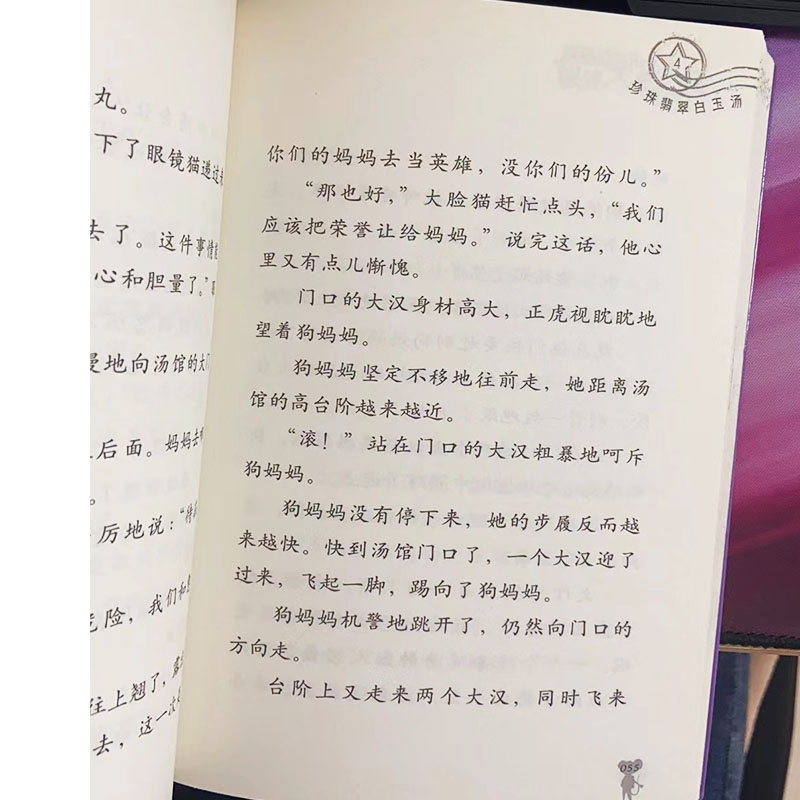 丸。
下了眼镜猫递过
去了。这件事情
心和胆量了。”
地向汤馆的大
后面。妈妈去
。
厉地说：“待
危险，我们和
往上翘了，
去，这一次
4
珍珠翡翠白玉汤
你们的妈妈去当英雄，没你们的份儿。”
“那也好，”大脸猫赶忙点头，“我们
应该把荣誉让给妈妈。”说完这话，他心
里又有点儿惭愧。
门口的大汉身材高大，正虎视眈眈地
望着狗妈妈。
狗妈妈坚定不移地往前走，她距离汤
馆的高台阶越来越近。
“滚！”站在门口的大汉粗暴地呵斥
狗妈妈。
狗妈妈没有停下来，她的步履反而越
来越快。快到汤馆门口了，一个大汉迎了
过来，飞起一脚，踢向了狗妈妈。
狗妈妈机警地跳开了，仍然向门口的
方向走。
台阶上又走来两个大汉，同时飞来
055